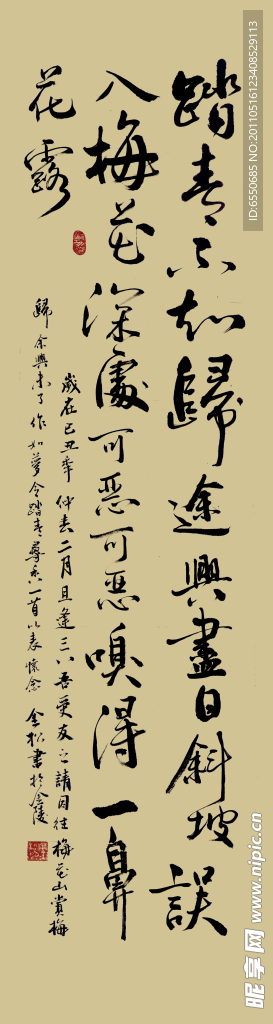 踏青不知歸途興盡日斜坡誤
入梅花深處可惡可惡嗅得一鼻
花露
歲在己丑年仲春二月旦逢三八吾受友之請同往梅花山賞梅
歸余興未了作如夢令踏青尋香一首以表懷念 金松書於金陵
ID:6550685 NO:20110516123408529113
昵享网 www.nipic.cn